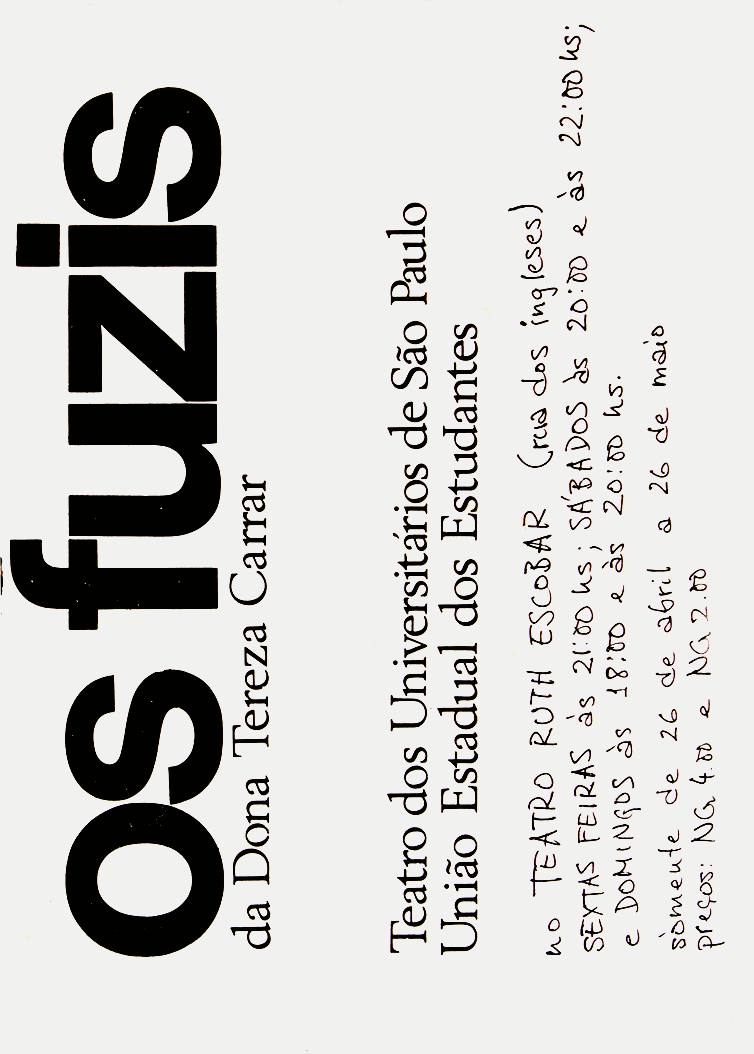 os fuzis
da Dona Tereza Carrar
Teatro dos Universitários de São Paulo
União Estadual dos Estudantes
no TEATRO RUTH ESCOBAR (rua dos ingleses)
SEXTAS FEIRAS às 21:00 hs; SÁBADOS às 20:00 e às 22:00 hs;
e DOMINGOS às 18:00 e às 20:00 hs.
sòmente de 26 de abril a 26 de maio
preços: NG 4.00 e NG 2.00